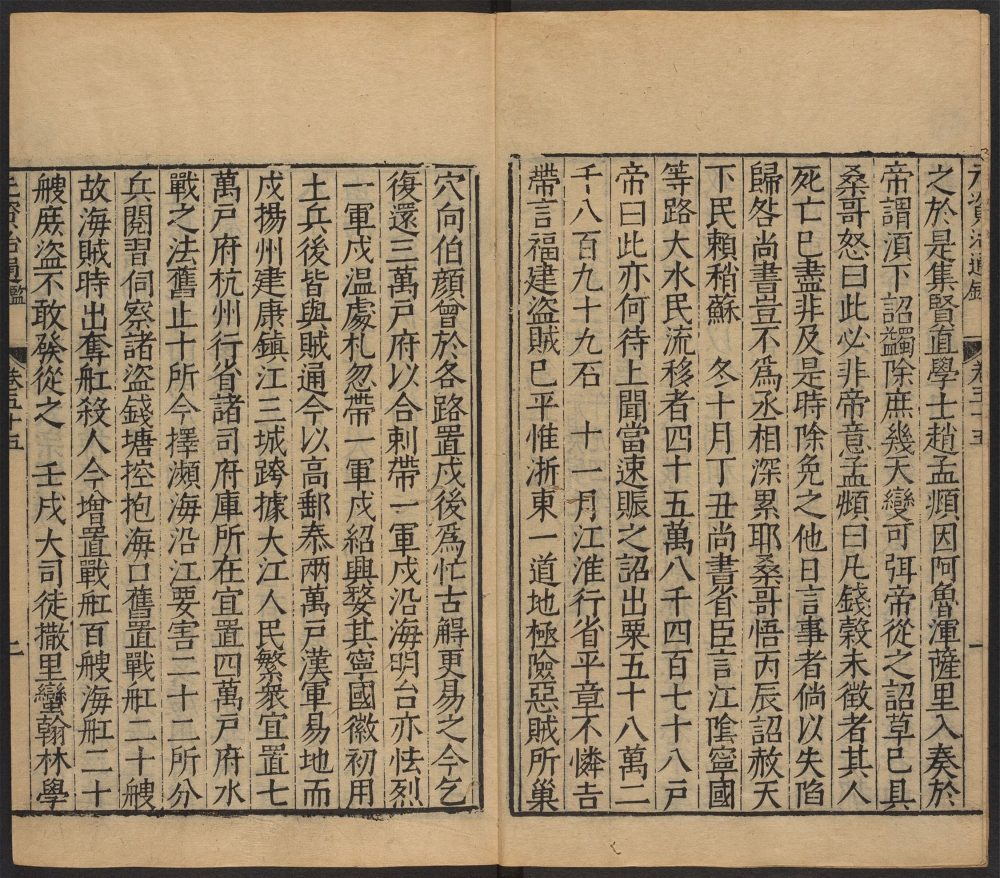 之於是集賢直學士趙孟頫因阿魯渾薩里入奏於
帝謂湏下詔蠲除庶幾天變可弭帝從之詔草巳具
桑哥怒曰此必非帝意孟頫曰凡錢穀未徵者其人
死亡巳盡非及是時除免之他日言事者倘以失陷
歸咎尚書豈不爲丞相深累耶桑哥悟丙辰詔赦天
下民賴稍蘇　冬十月丁丑尚書省臣言江隂寧國
等路大水民流移者四十五萬八千四百七十八戸
帝曰此亦何待上聞當速賑之詔出粟五十八萬二
千八百九十九石　十一月江淮行省平章不憐吉
帶言福建盗賊巳平惟浙東一道地極險惡賊所巢
穴向伯顔曾於各路置戍後爲忙古觧更易之今乞
復還三萬戸府以合剌帶一軍戍沿海明台亦怯烈
一軍戍温處札忽帶一軍戍紹興婺其寧國徽初用
土兵後皆與賊通今以高郵泰兩萬戸漢軍易地而
戍揚州建康鎮江三城跨據大江人民繁衆宜置七
萬戸府杭州行省諸司府庫所在宜置四萬戸府水
戰之法舊止十所今擇瀕海沿江要害二十二所分
兵閱習伺察諸盗錢塘控抱海口舊置戰舡二十艘
故海賊時出奪舡殺人今增置戰舡百艘海舡二十
艘庶盗不敢發從之　壬戍大司徒撒里蠻翰林學